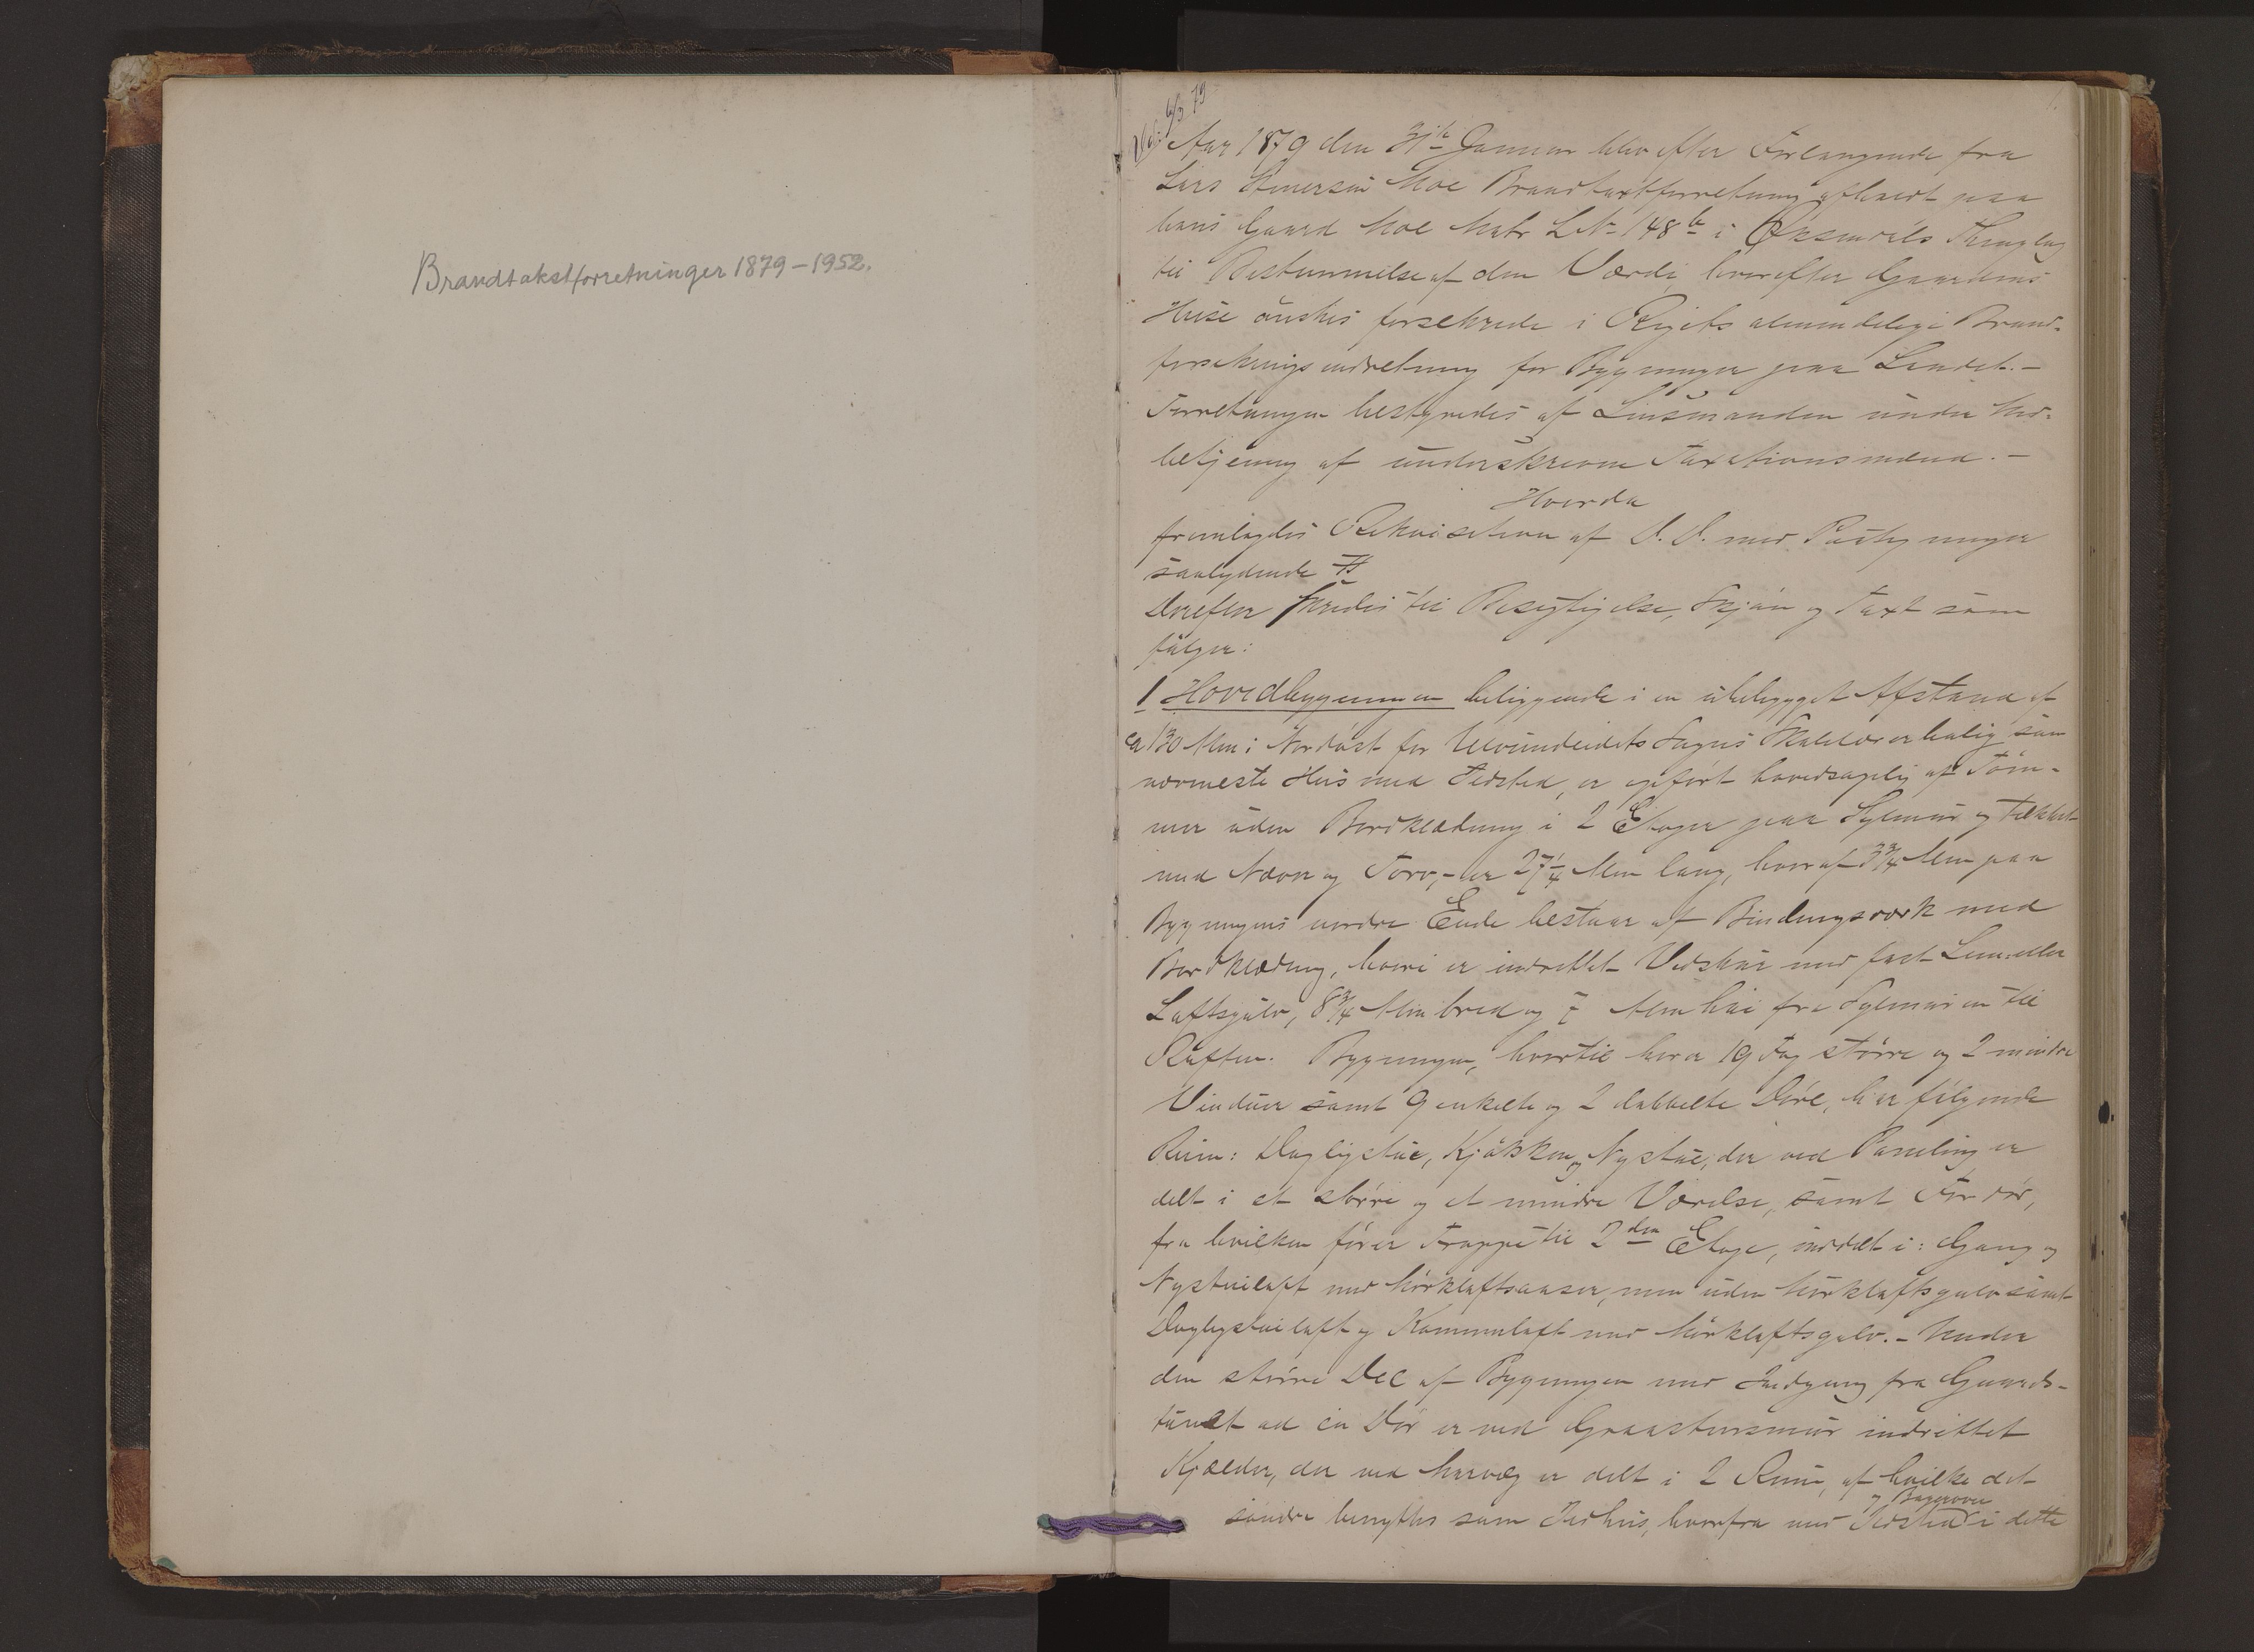 Brandtakstforretninger 1879-1952.
1.
6/3 79
Aar 1879 den Januar blev efter Forlangende fra
Lars Moe Brandtaxtforretning afholdt paa
hans Gaard Moe Matr L№ 148 b i Øksendals Thinglag
til Bestemmelse af den Værdi, hvorefter Gaardens
Huse ønskes forsikrede i Rigets almindelige Brand-
forsikringsindretning for Bygninger paa Landet.-
Forretningen bestyredes af Lensmanden under Med-
betjening af underskrevne Taxationsmænd.-
Hvorda
fremlagdes Rekvisition af D.D. med Paategninger
saalydende
Derefter skredes til Besigtigelse, Skjøn og Taxt som
følger:
1 Hovedbygningen beliggende i en ubebygget Afstand af
ca 130 Alen i Nordøst for som
nærmeste Hus med Ildsted, er opført hovedsagelig af Tøm-
mer uden Bordklædning i 2 Etager paa Sylmur og tækket
med Næver og Torv,- er 27 1/4 Alen lang, hvoraf 3 3/4 Alen paa
Bygningens nordre Ende bestaar af Bindingsverk med
Bordklædning, hvori er indrettet Vedskur med fast Lem eller
Loftsgulv, 8 3/4 Alen bred og 7 Alen høi fra Sylmuren til
Raften. Bygningen, hvortil hører 19 Fag større og 2 mindre
Vinduer samt 9 enkelte og 2 dobbelte Døre, har følgende
Rum: Dagligstue, Kjøkken og Nystue, der ved Paneling er
delt i et større og et mindre Værelse, samt Fordør,
fra hvilken fører Trappe til 2den Etage, inddelt i: Gang og
Nystueloft med Mørkloftsaaser, men uden Mørkloftsgulv samt
Dagligstueloft og Kammerloft med Mørkloftsgulv.- Under
den større Del af Bygningen med Indgang fra Gaards-
tunet ad en Dør er ved Graastensmur indrettet
Kjælder, der ved Murvæg er delt i 2 Rum, af hvilke det
søndre benyttes som Ildhus, hvorfra med Ildsted og Bagerovn i dette